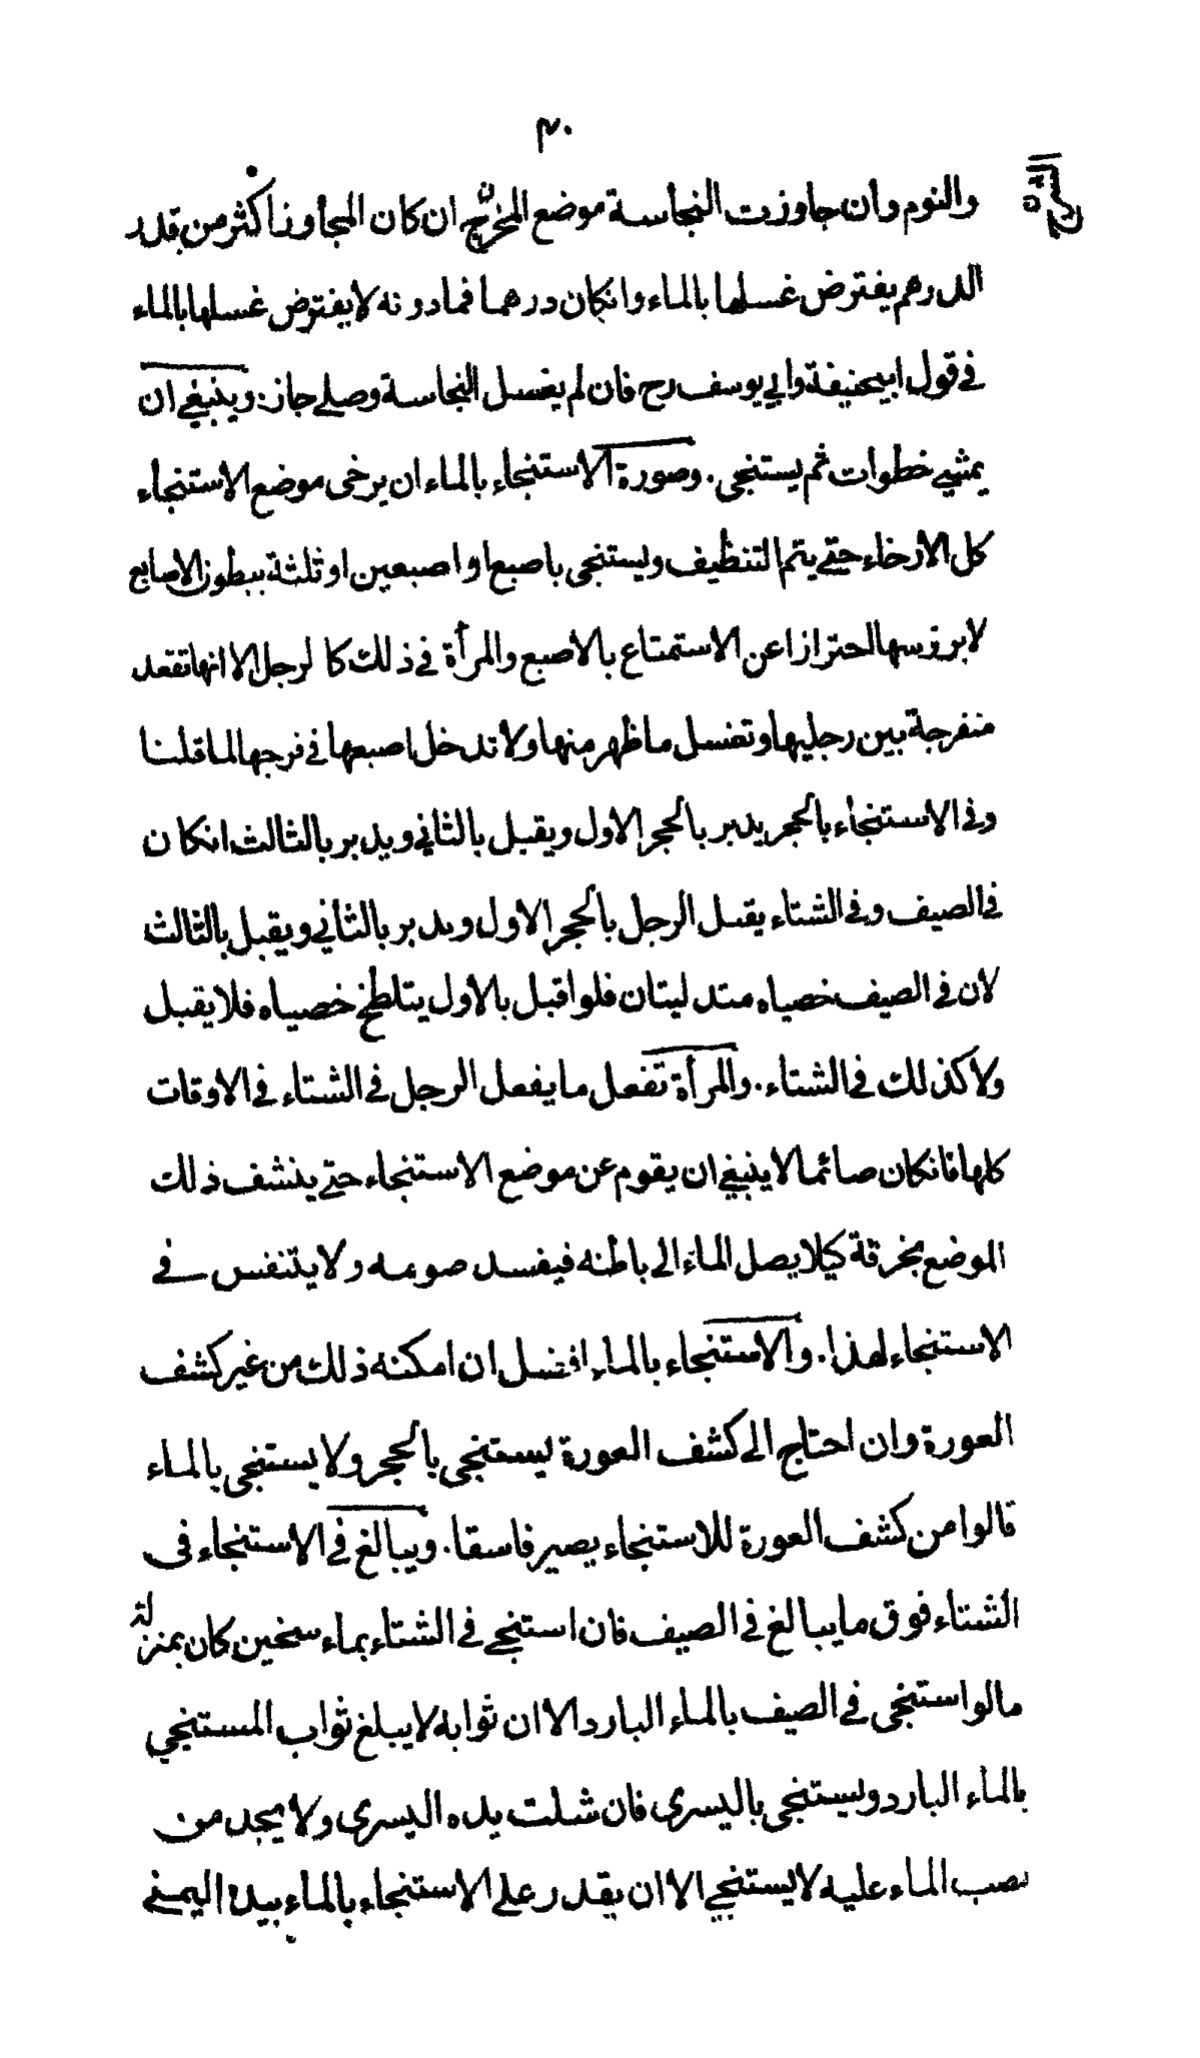 ٣٠
والنوم وان جاوزت النجاسة موضع المخرج ان كان المجاوز اكثر من قدر
الدرهم يفترض غسلها بالماء وانكان درهما فمادونه لا يفترض غسلها بالماء
في قول ابيحنيفة وابي يوسف رح فان لم يغسل النجاسة وصلے جاز. وينبغي ان
يمشي خطوات ثم يستنجي. وصورة الاستنجاء بالماء ان يرخى موضع الاستنجاء
كل الارخاء حتے يتم التنظيف ويستنجي باصبع او اصبعين او ثلثة ببطون الاصابع
لا برؤسها احترازا عن الاستمتاع بالاصبع والمرأة في ذلك كالرجل الا انها تقعد
منفرجة بين رجليها وتغسل ما ظهر منها ولا تدخل اصبعها في فرجها لما قلنا
وفي الاستنجاء بالحجر يدبر بالحجر الاول ويقبل بالثاني ويدبر بالثالث انكان
في الصيف وفي الشتاء يقبل الرجل بالحجر الاول ويدبر بالثاني ويقبل بالثالث
لان في الصيف خصياه متدليتان فلو اقبل بالاول يتلطخ خصياه فلا يقبل
ولا كذلك في الشتاء. والمرأة تفعل ما يفعل الرجل في الشتاء في الاوقات
كلها فانكان صائما لا ينبغي ان يقوم عن موضع الاستنجاء حتے ينشف ذلك
الموضع بخرقة كيلا يصل الماء الى باطنه فيفسد صومه ولا يتنفس في
الاستنجاء لهذا. والاستنجاء بالماء افضل ان امكنه ذلك من غير كشف
العورة وان احتاج الى كشف العورة يستنجي بالحجر ولا يستنجي بالماء
قالوا من كشف العورة للاستنجاء يصير فاسقا. ويبالغ في الاستنجاء في
الشتاء فوق ما يبالغ في الصيف فان استنجے في الشتاء بماء سخين كان بمنزلة
مالو استنجى في الصيف بالماء البارد الا ان ثوابه لا يبلغ ثواب المستنجي
بالماء البارد ويستنجي باليسرى فان شلت يده اليسرى ولا يجد من
يصب الماء عليه لا يستنجي الا ان يقدر على الاستنجاء بالماء بيده اليمنے